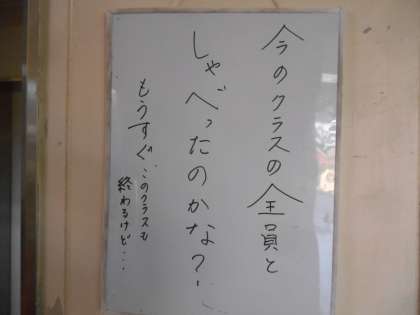 今のクラスの全員と
しゃべったのかな？
もうすぐ、このクラスも
終わるけど…